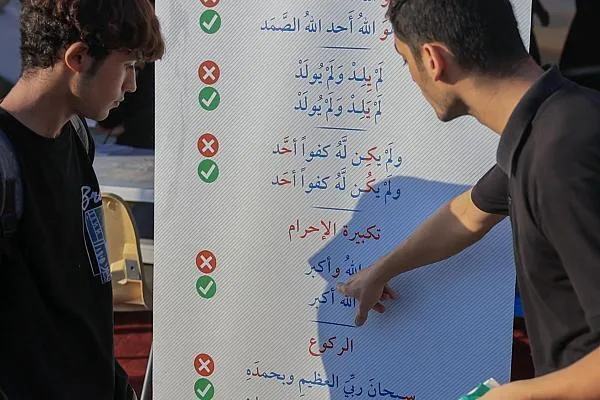 اللهُ أَحد اللهُ الصَّمَد
لَمْ يَلِدْ وَلَمْ يُولَدْ
لَمْ يَلِدْ وَلَمْ يُولَدْ
ولَمْ يكِن لَّهُ كفواً أحَّد
ولَمْ يكُن لَّهُ كفواً أحَد
تكبيرة الإحرام
اللهُ وأكبر
اللهُ أكبر
الركوع
سبحانَ ربِّيَ العظيمِ وبحمدَهِ